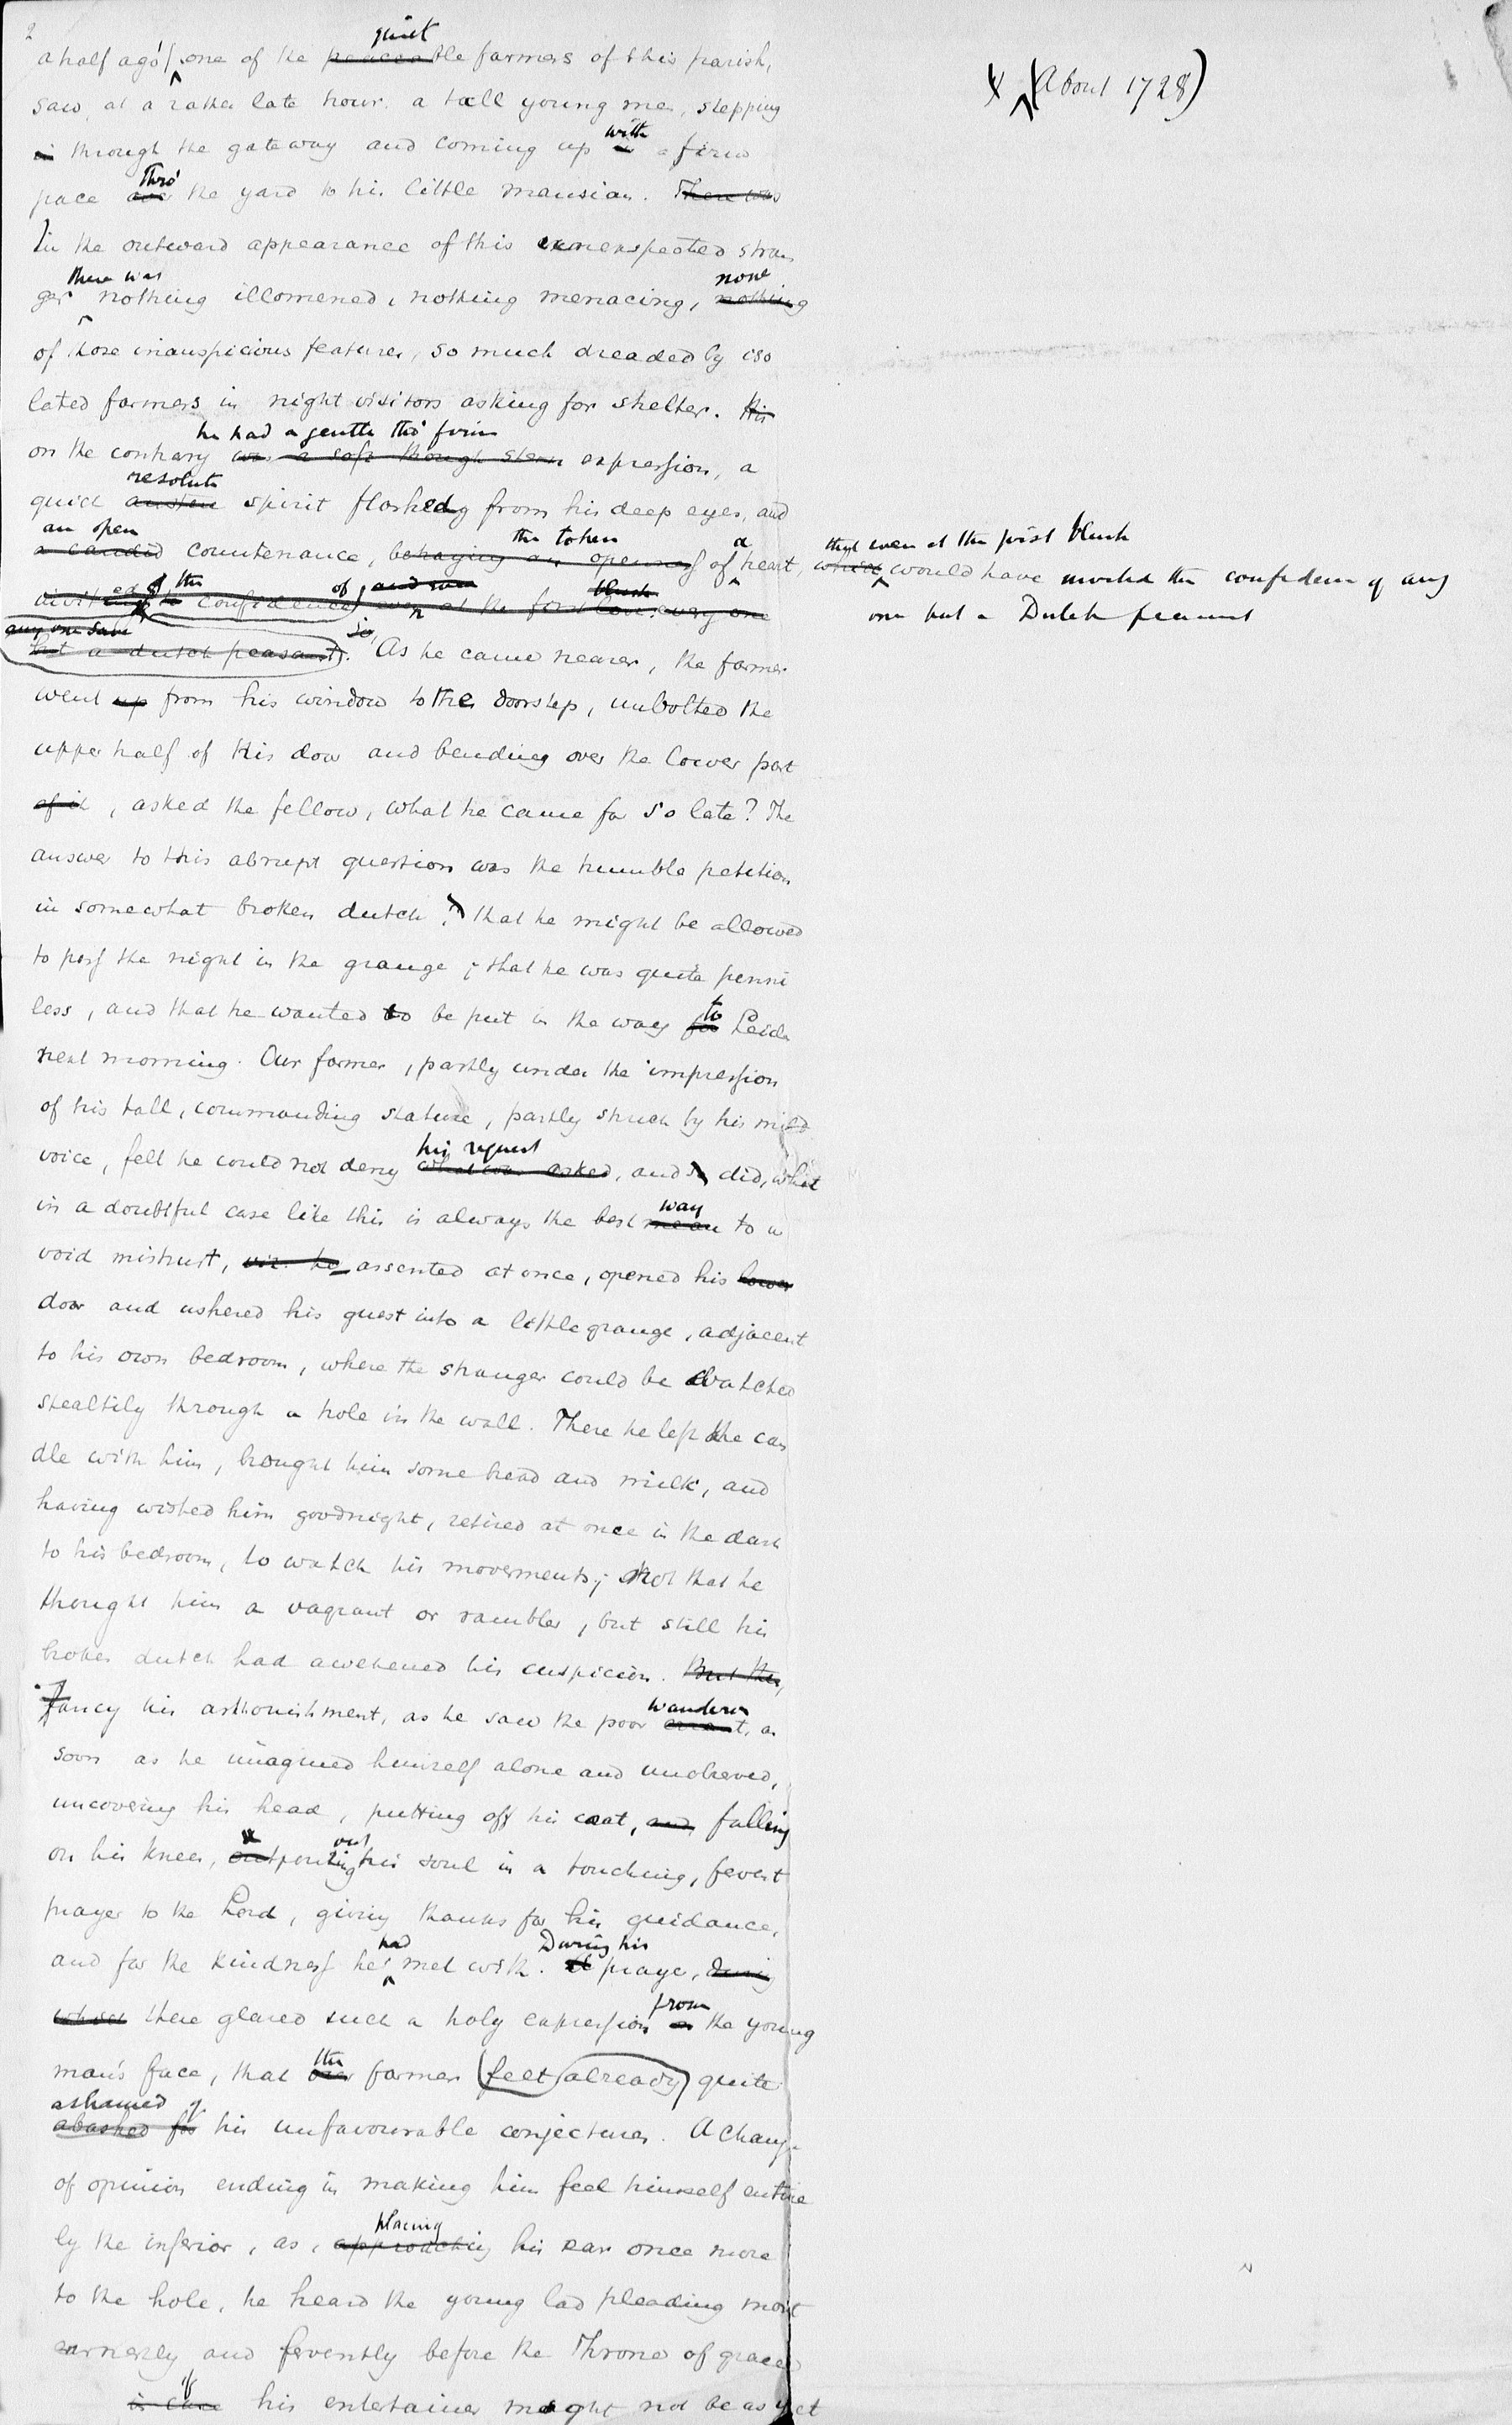 2
quiet
a half ago / one of the peaceable farmers of this parish,
(About 1728)
saw, at a rather late hour, a tall young man, stepping
with
in through the gateway and coming up a firm
thro'
pace over the yard to his little mansion. There was
In the outward appearance of this unexpected stran
there was none
ger nothing illomened, nothing menacing, nothing
of those inauspicious features, so much dreaded by iso
lated farmers in night visitors asking for shelter. His
he had a gentle tho' firm
on the contrary was a soft though stern expression, a
resolute
quick austere spirit flashed from his deep eyes, and
an open the token a that even at the first blush
a candid countenance, betraying an openness of heart, which would have invited the confidence of any
ed of the of and even blush one but a Dutch peasant
inviting the confidence even at the first every one
any one save
but a dutch peasant). As he came nearer, the farmer
went up from his window to the doorstep, unbolted the
upper half of his door and bending over the lower part
of it, asked the fellow, what he came for so late? The
answer to this abrupt question was the humble petition
in somewhat broken dutch, that he might be allowed
to pass the night in the grange; that he was quite penni
to
less, and that he wanted to be put in the way for Leiden
next morning. Our farmer, partly under the impression
of his tall, commanding stature, partly struck by his mild
his request
voice, felt he could not deny what was asked, and did, what
way
in a doubtful case like this is always the best mean to a
void mistrust, viz. he assented at once, opened his lower
door and ushered his guest into a little grange, adjacent
to his own bedroom, where the stranger could be watched
stealtily through a hole in the wall. There he left the can
dle with him, brought him some bread and milk, and
having wished him goodnight, retired at once in the dark
to his bedroom, to watch his movements; not that he
thought him a vagrant or rambler, but still his
broken dutch had awekened his suspicion. But the
wanderer
Fancy his asthonishment, as he saw the poor errant, as
soon as he imagined himself alone and unobserved,
uncovering his head, putting off his coat, and falling
& out
on his knees, outpouring his soul in a touching, fervent
prayer to the Lord, giving thanks for his guidance,
had During his
and for the kindness he met with. prayer, during
from
which there glared such a holy expression on the young
the
man's face, that our farmer felt already quite
ashamed of
abashed for his unfavourable conjectures. A change
of opinion ending in making him feel himself entire
placing
ly the inferior, as, approaching his ear once more
to the hole, he heard the young lad pleading most
earnestly and fervently before the Throne of grace
if
in case his entertainer might not be as yet